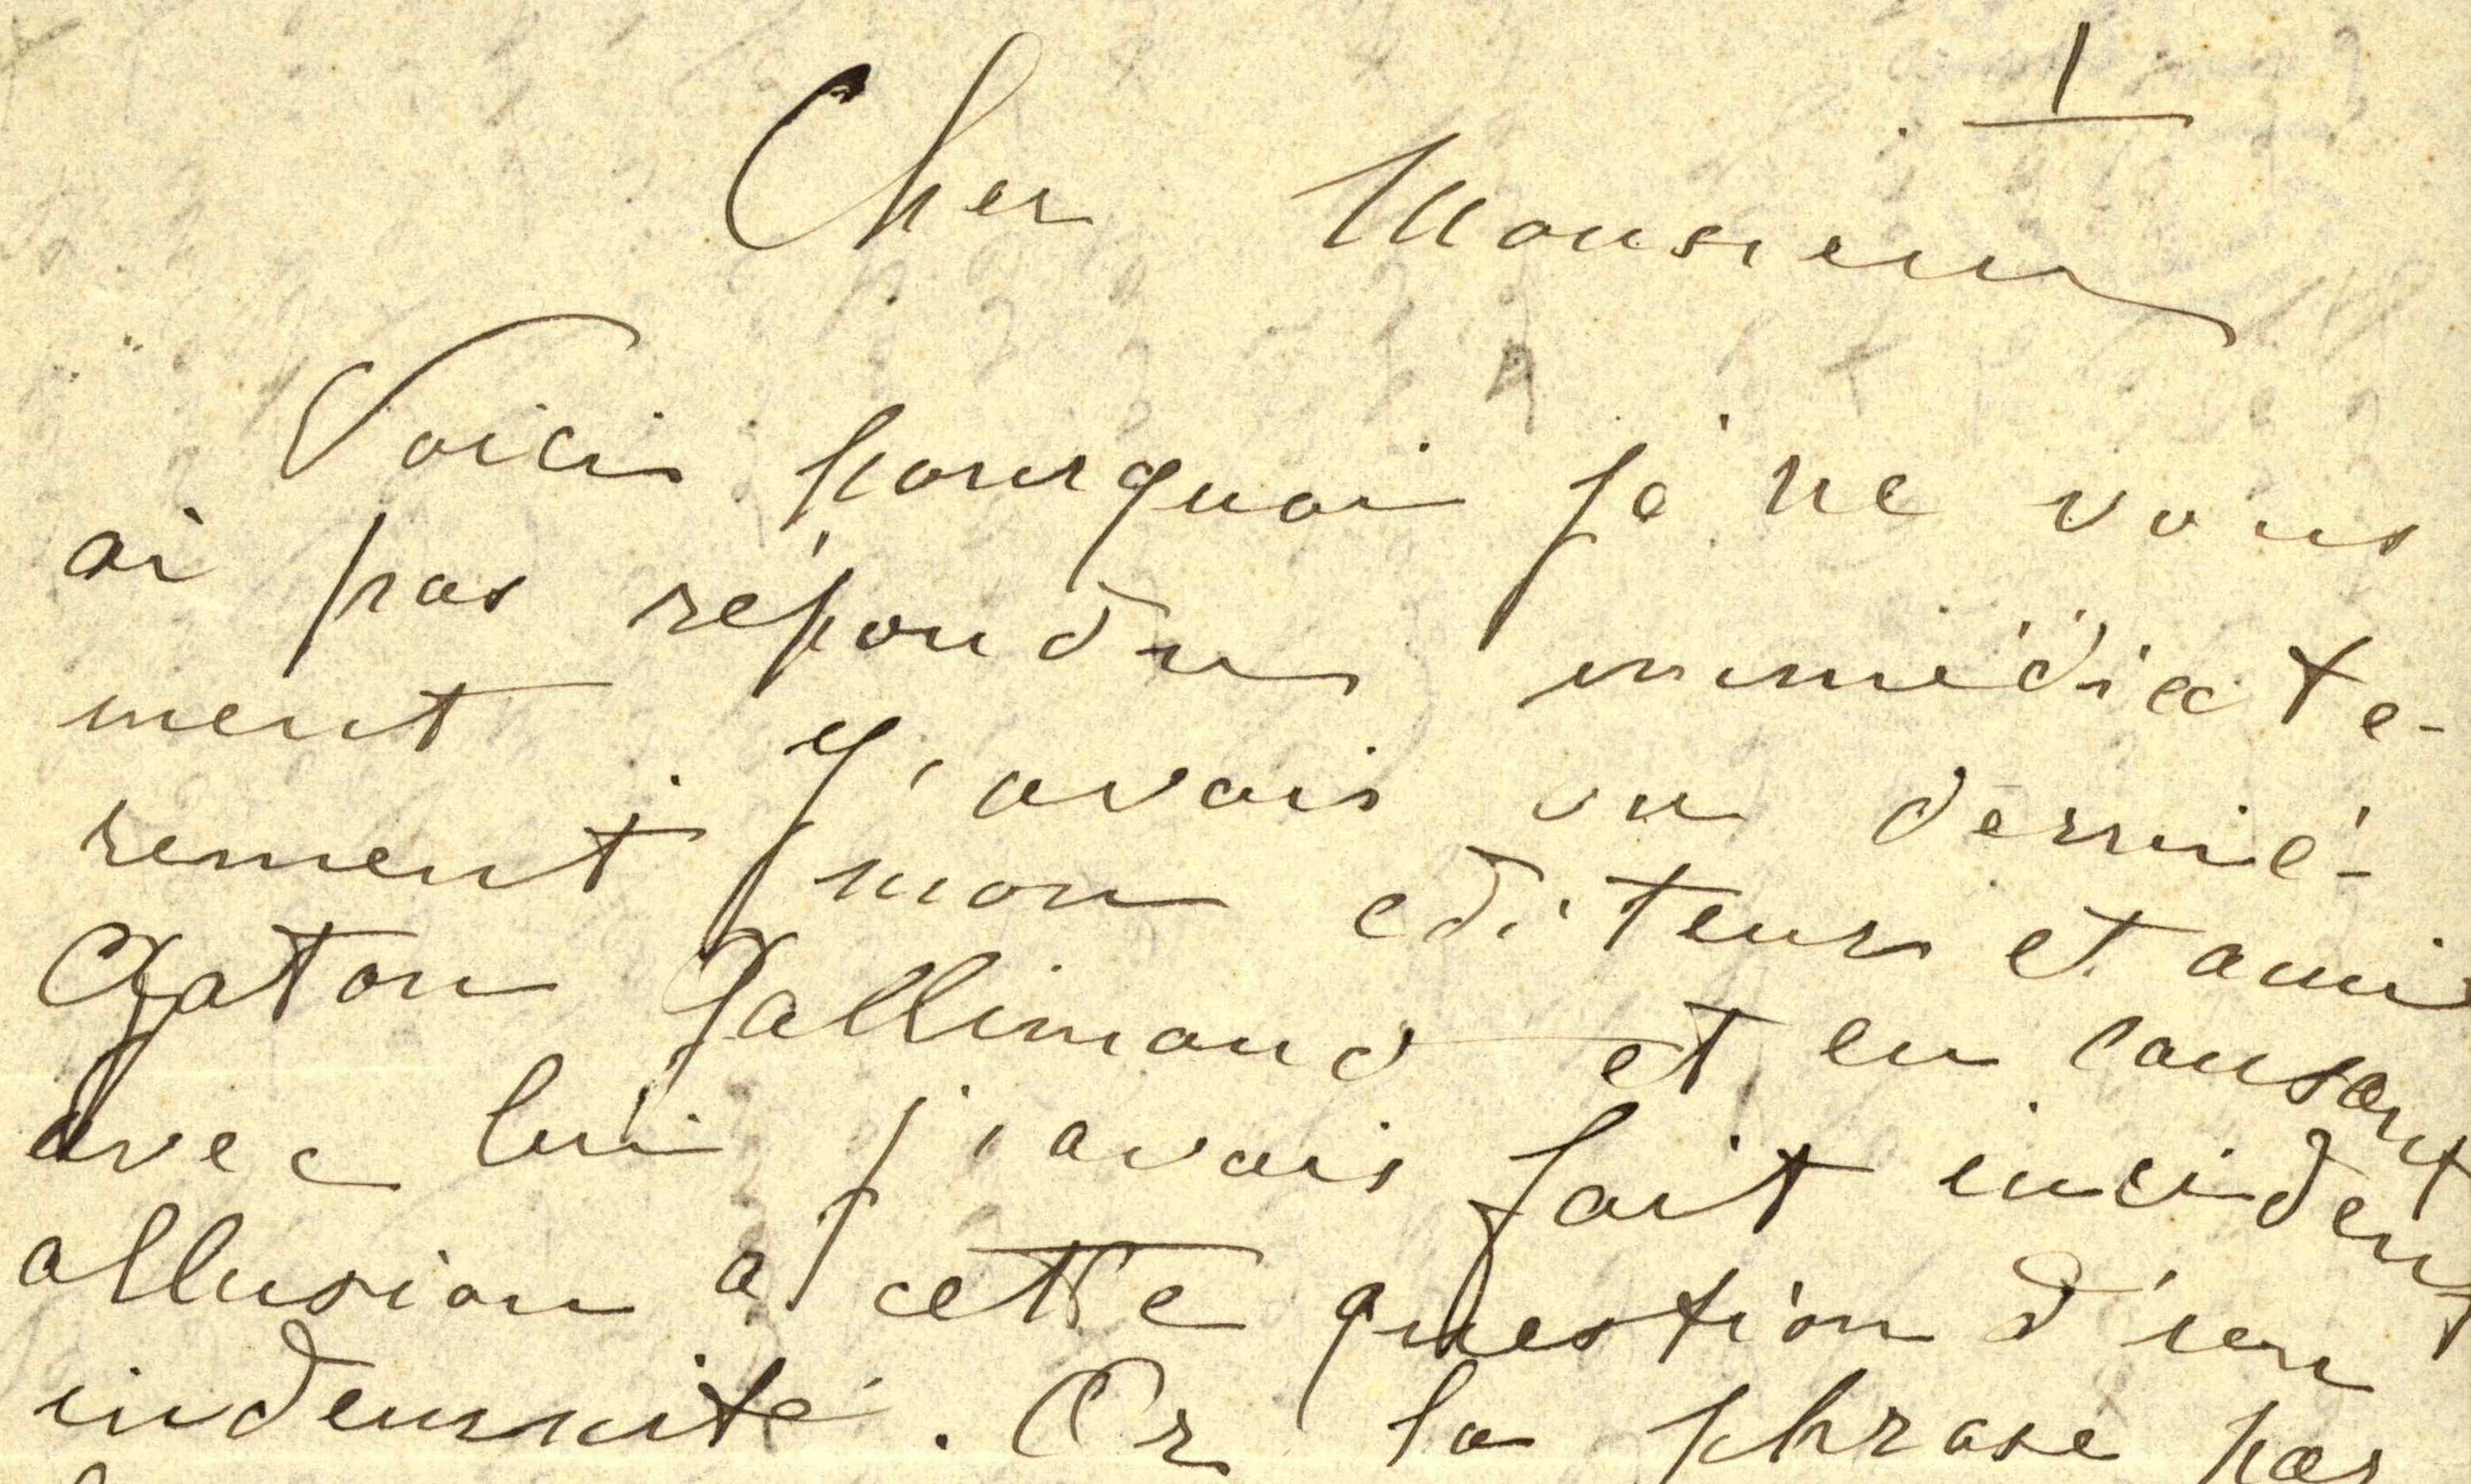 1
Cher Monsieur
Voici pourquoi je ne vous
ai pas répondu immédiate-
ment. J'avais vu derniè-
rement mon editeur et ami
Gaston Gallimard et en causant
avec lui j'avais fait incident
allusion à cette question d'un
indemnité. Or la phrase par